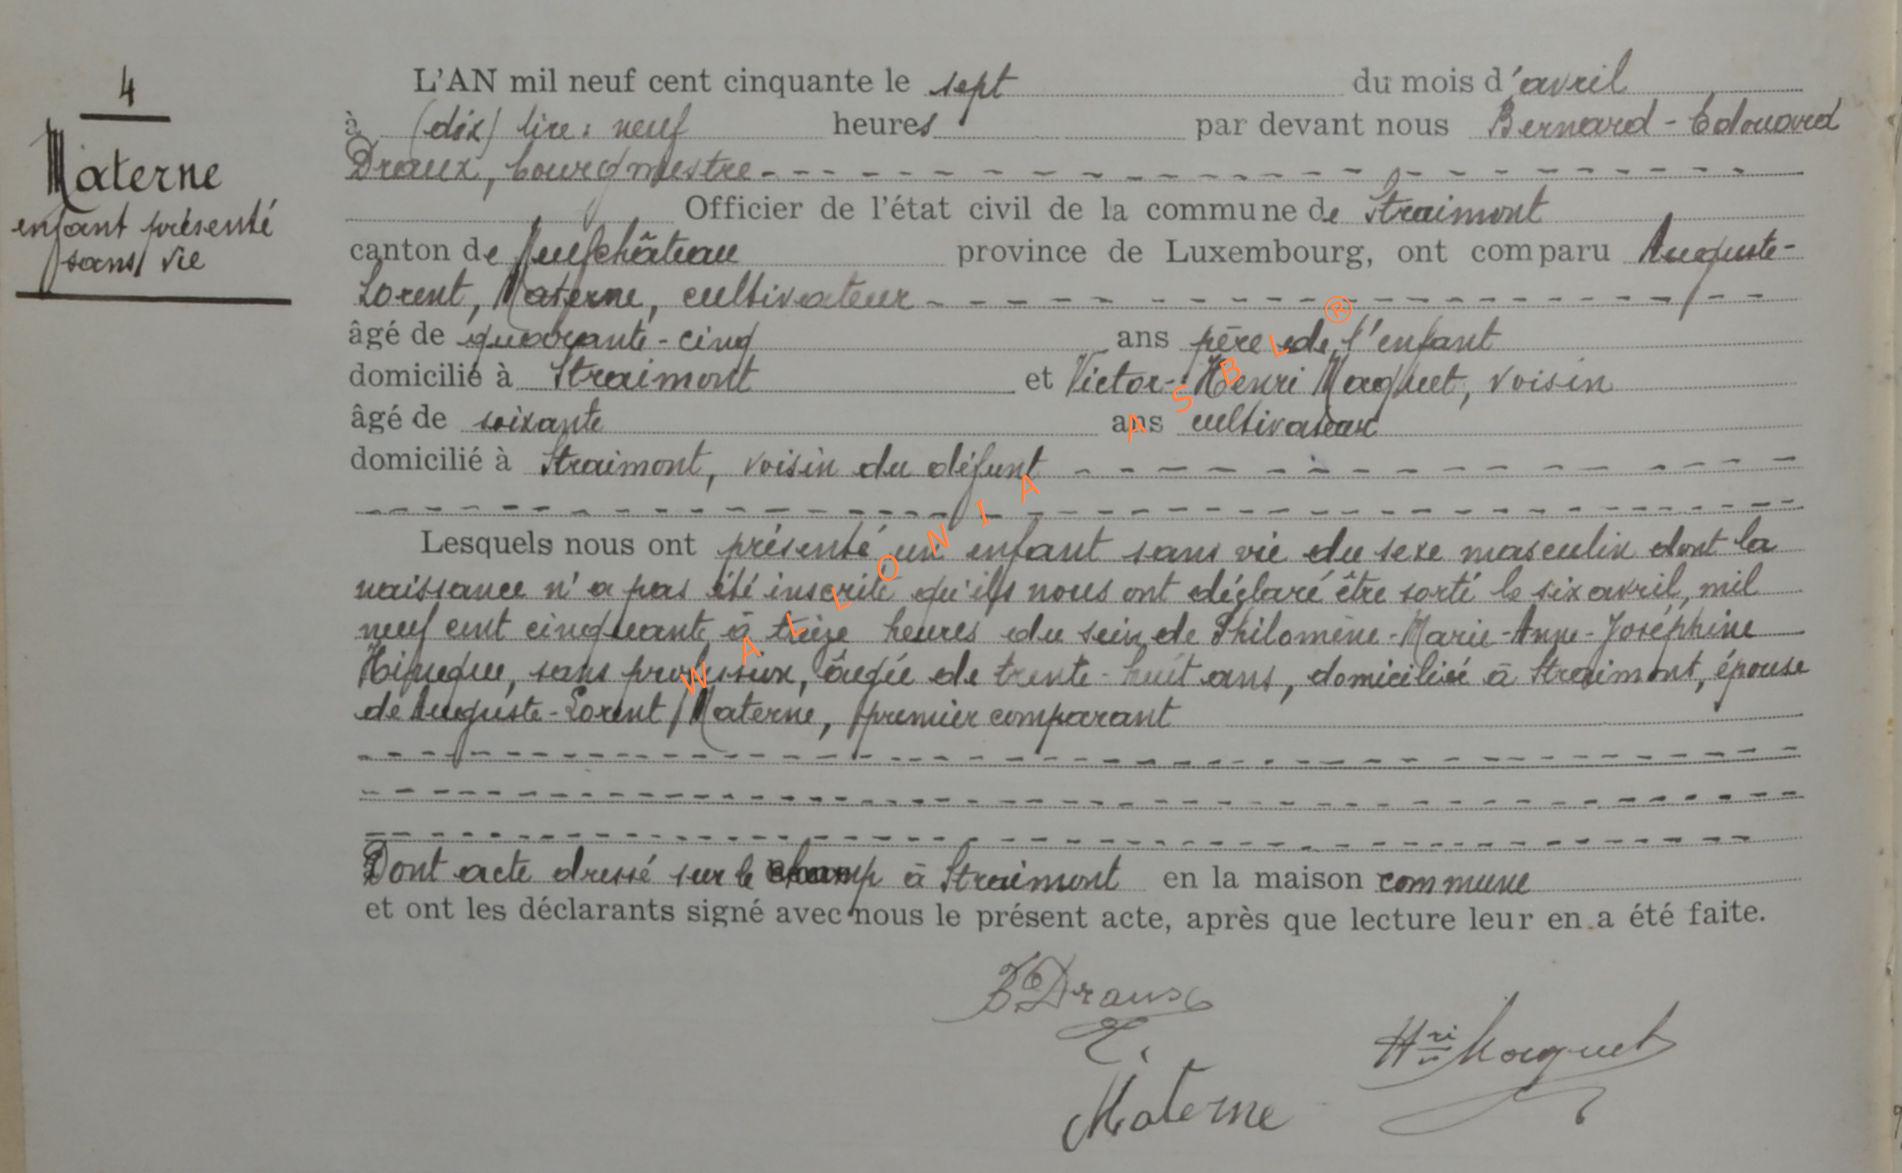 4
Materne
enfant présenté
sans vie
L'AN mil neuf cent cinquante le sept du mois d'avril
à (dix) lire : neuf heures par devant nous Bernard - Edouard
Draux, bourgmestre
Officier de l'état civil de la commune de Straimont
canton de Neufchâteau province de Luxembourg, ont comparu Auguste-
Lorent, Materne, cultivateur
âgé de quarante-cinq ans père de l'enfant
domicilié à Straimont et Victor-Henri Maquet, voisin
âgé de soixante ans cultivateur
domicilié à Straimont, voisin du défunt
Lesquels nous ont présenté un enfant sans vie du sexe masculin dont la
naissance n'a pas été inscrite qu'ils nous ont déclaré être sorti le six avril, mil
neuf cent cinquante à treize heures du sein de Philomène-Marie-Anne-Joséphine
sans profession, âgée de trente-huit ans, domiciliée à Straimont, épouse
de Auguste-Lorent Materne, premier comparant
Dont acte dressé sur le champ à Straimont en la maison commune
et ont les déclarants signé avec nous le présent acte, après que lecture leur en a été faite.
Draux
Materne
Hri Maquet
WALLONIA ASBL ®